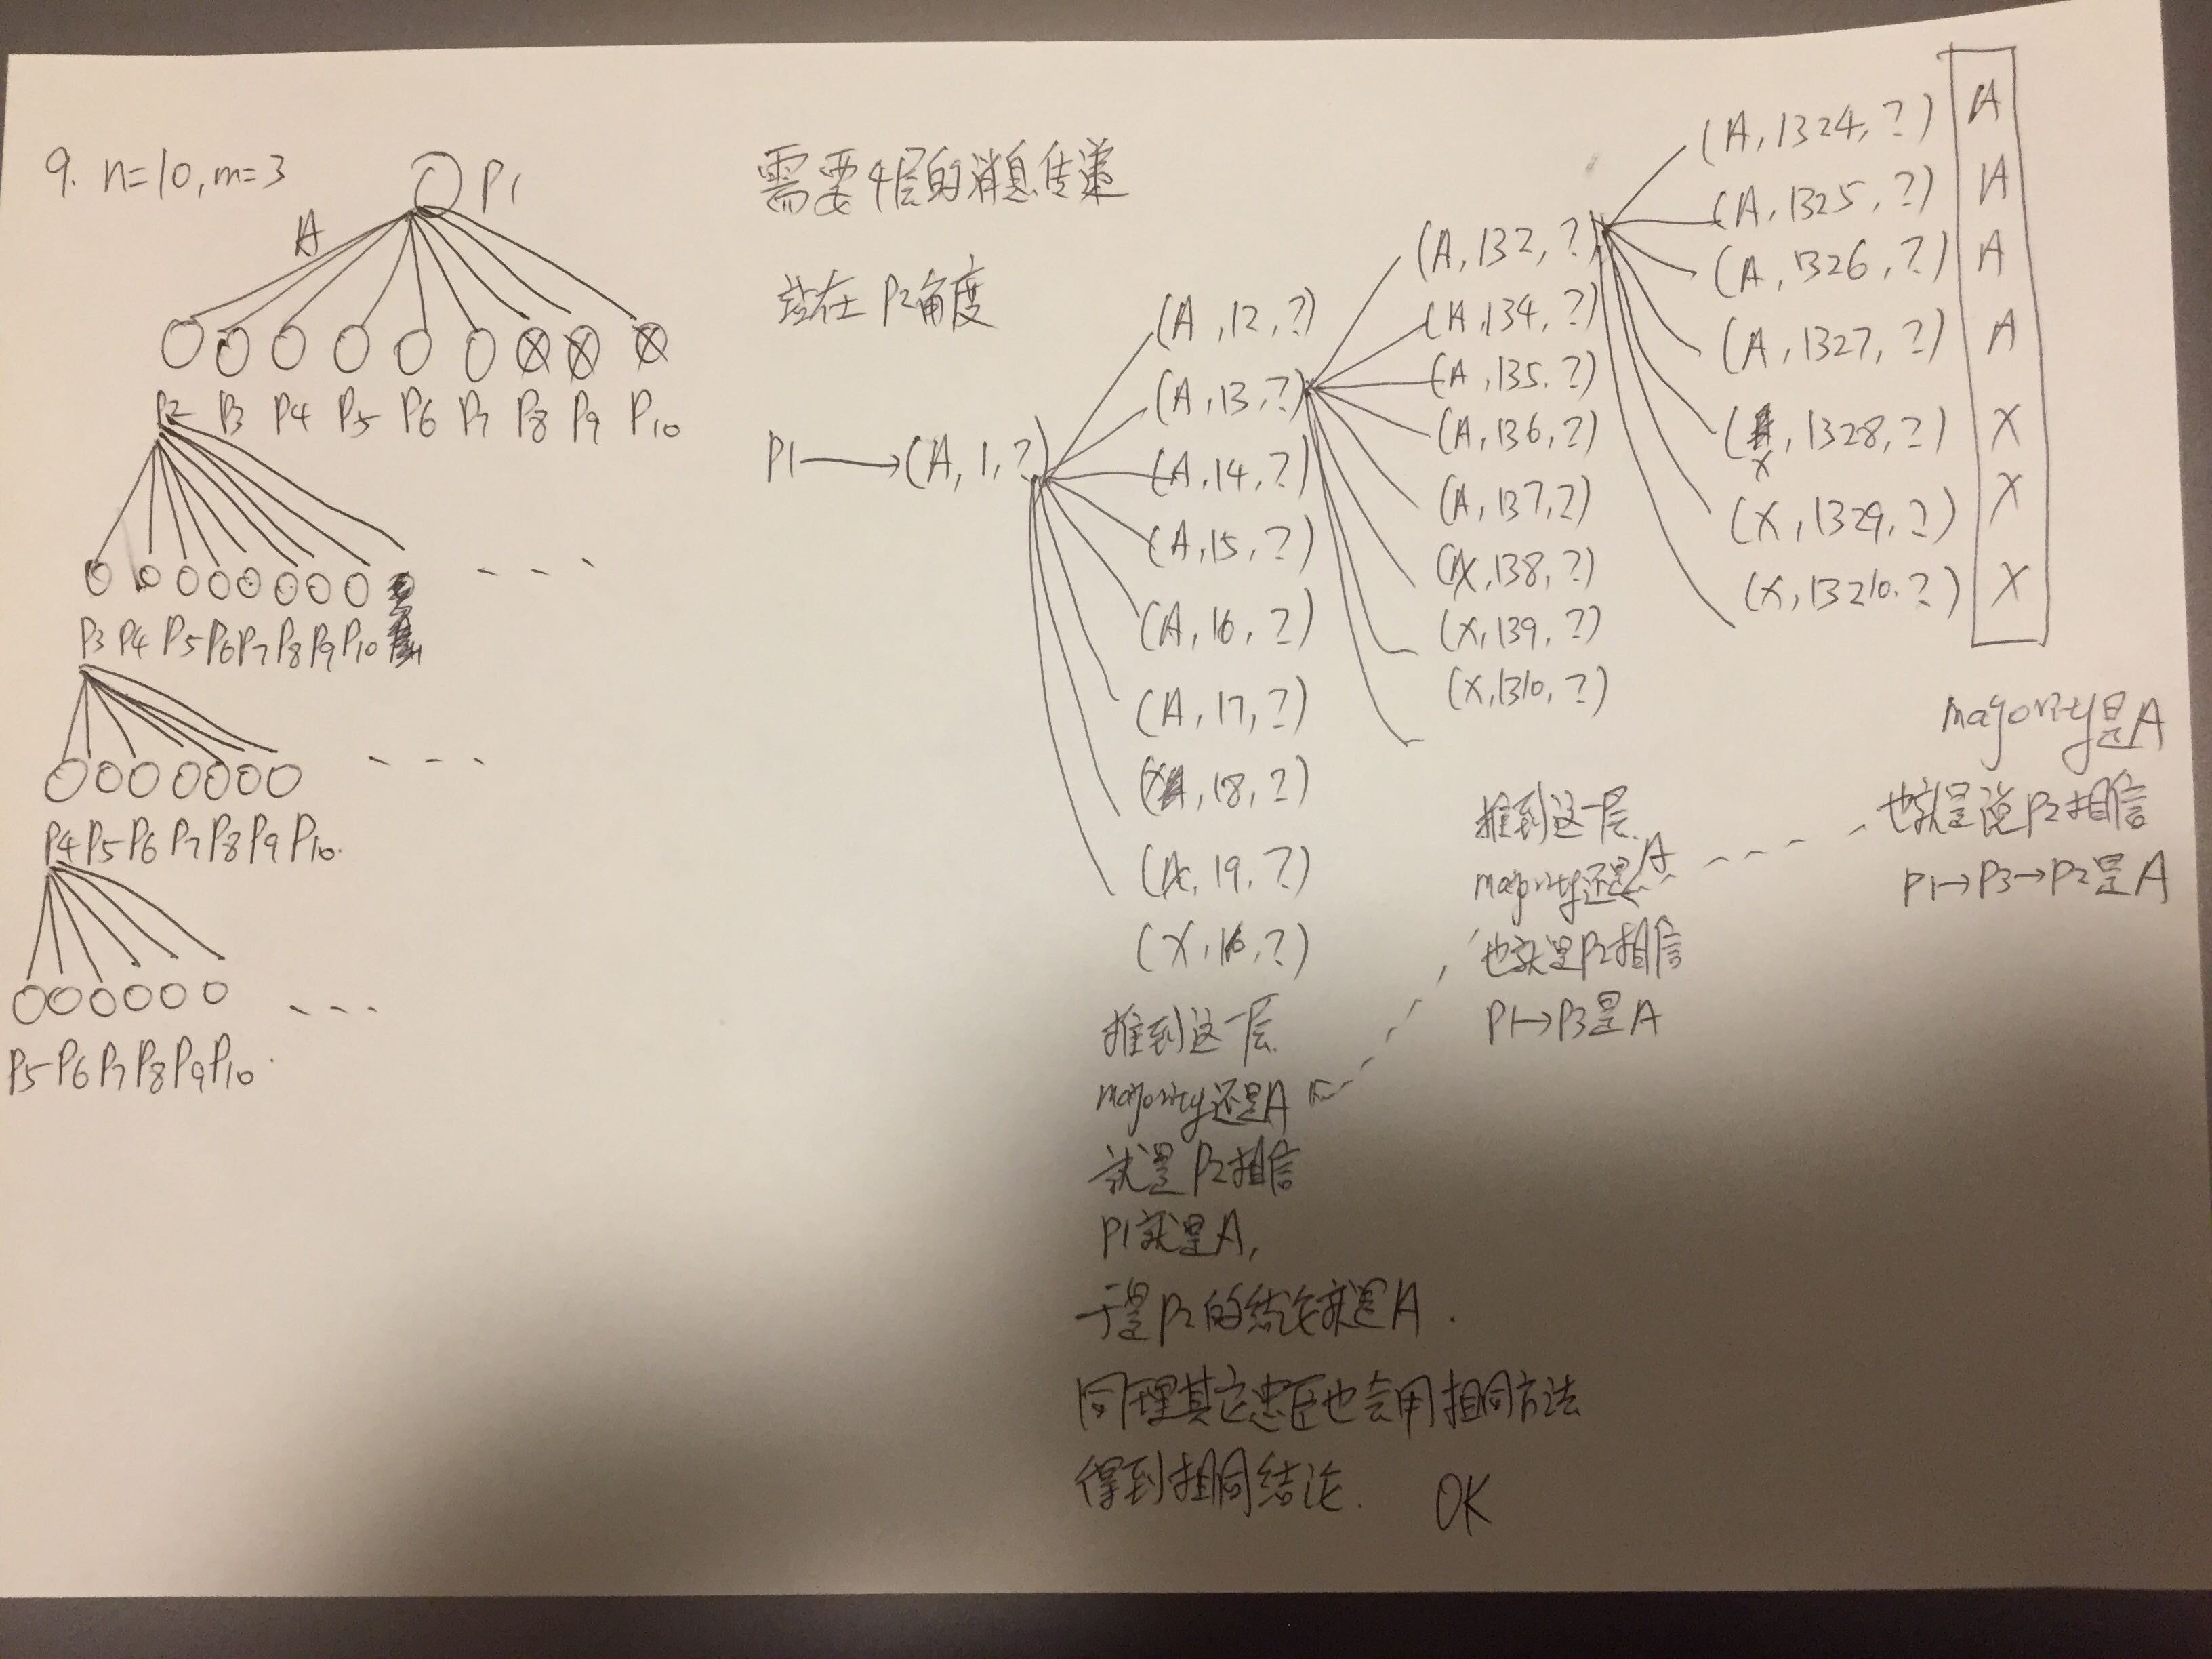 9. n=10, m=3
P1
A
P2 P3 P4 P5 P6 P7 P8 P9 P10
P3 P4 P5 P6 P7 P8 P9 P10
P4 P5 P6 P7 P8 P9 P10.
P5 P6 P7 P8 P9 P10.
需要4层的消息传递
站在P2角度
P1→(A, 1, ?)
(A, 12, ?)
(A, 13, ?)
(A, 14, ?)
(A, 15, ?)
(A, 16, ?)
(A, 17, ?)
(X, 18, ?)
(X, 19, ?)
(X, 110, ?)
推到这一层
majority还是A
就是P2相信
P1就是A,
于是P2的结论就是A.
同理其它忠臣也会用相同方法
得到相同结论. OK
(A, 132, ?)
(A, 134, ?)
(A, 135, ?)
(A, 136, ?)
(A, 137, ?)
(X, 138, ?)
(X, 139, ?)
(X, 1310, ?)
推到这一层.
majority还是A
也就是P2相信
P1→P3是A
(A, 1324, ?) A
(A, 1325, ?) A
(A, 1326, ?) A
(A, 1327, ?) A
(X, 1328, ?) X
(X, 1329, ?) X
(X, 13210, ?) X
majority是A
也就是说P2相信
P1→P3→P2是A